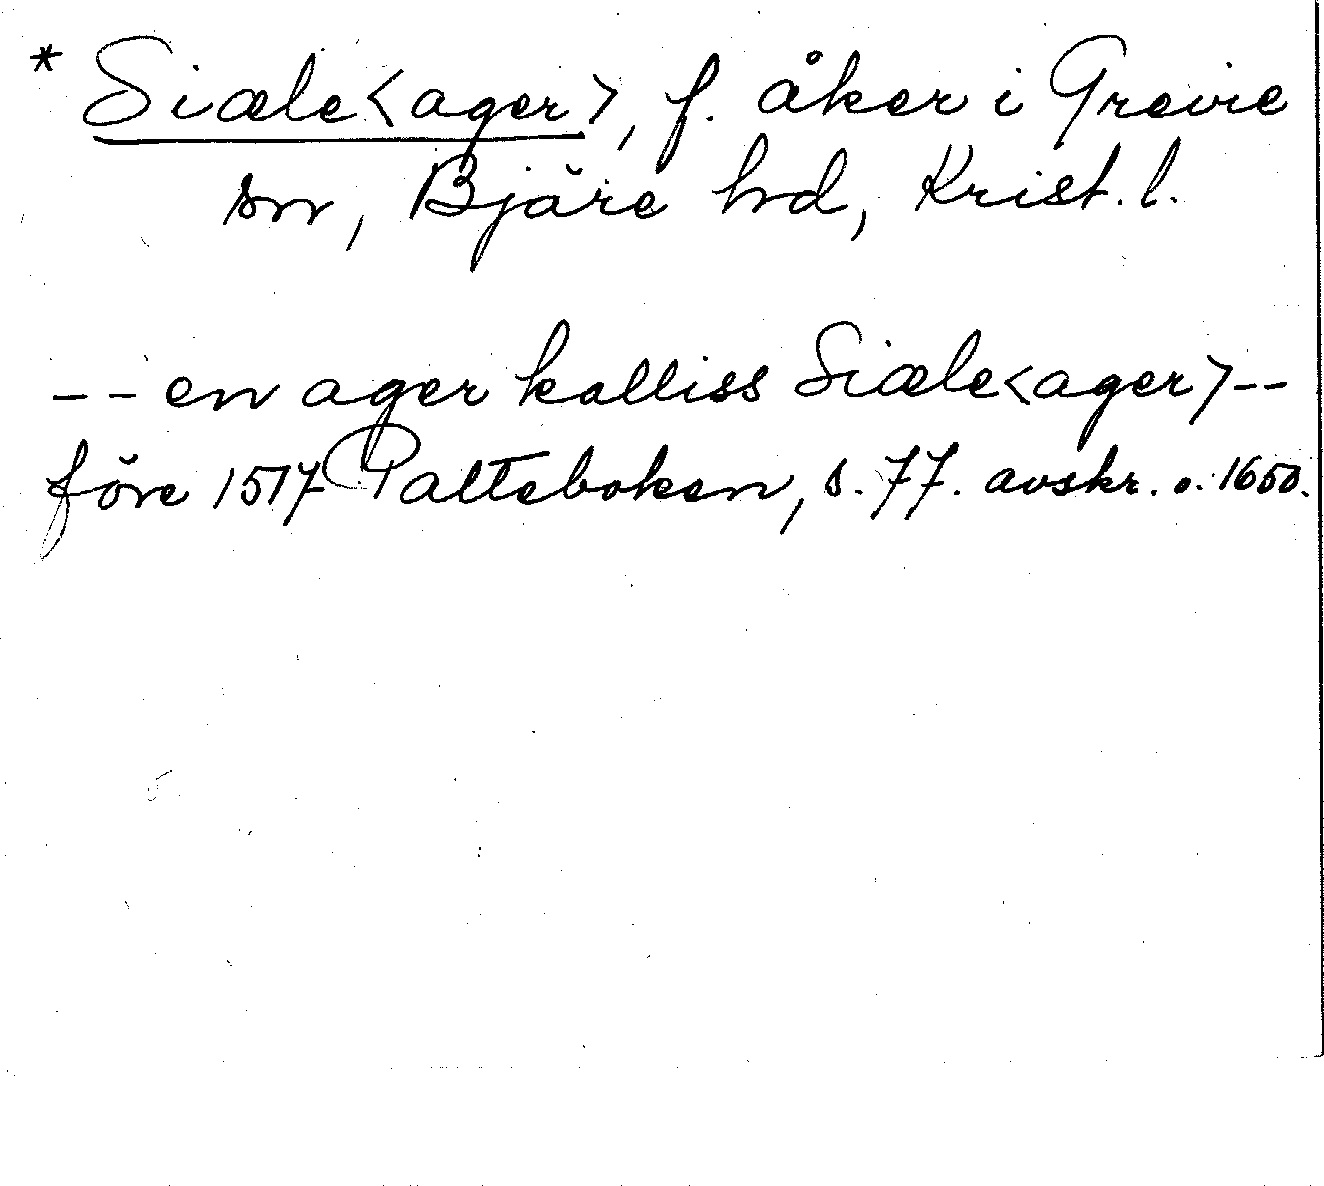 * Siæle<ager>, f. åker i Grevie
sn, Bjäre hd, Krist. l.
-- en ager kalliss Siæle<ager> --
före 1517 Palteboken, s. 77. avskr. o. 1650.